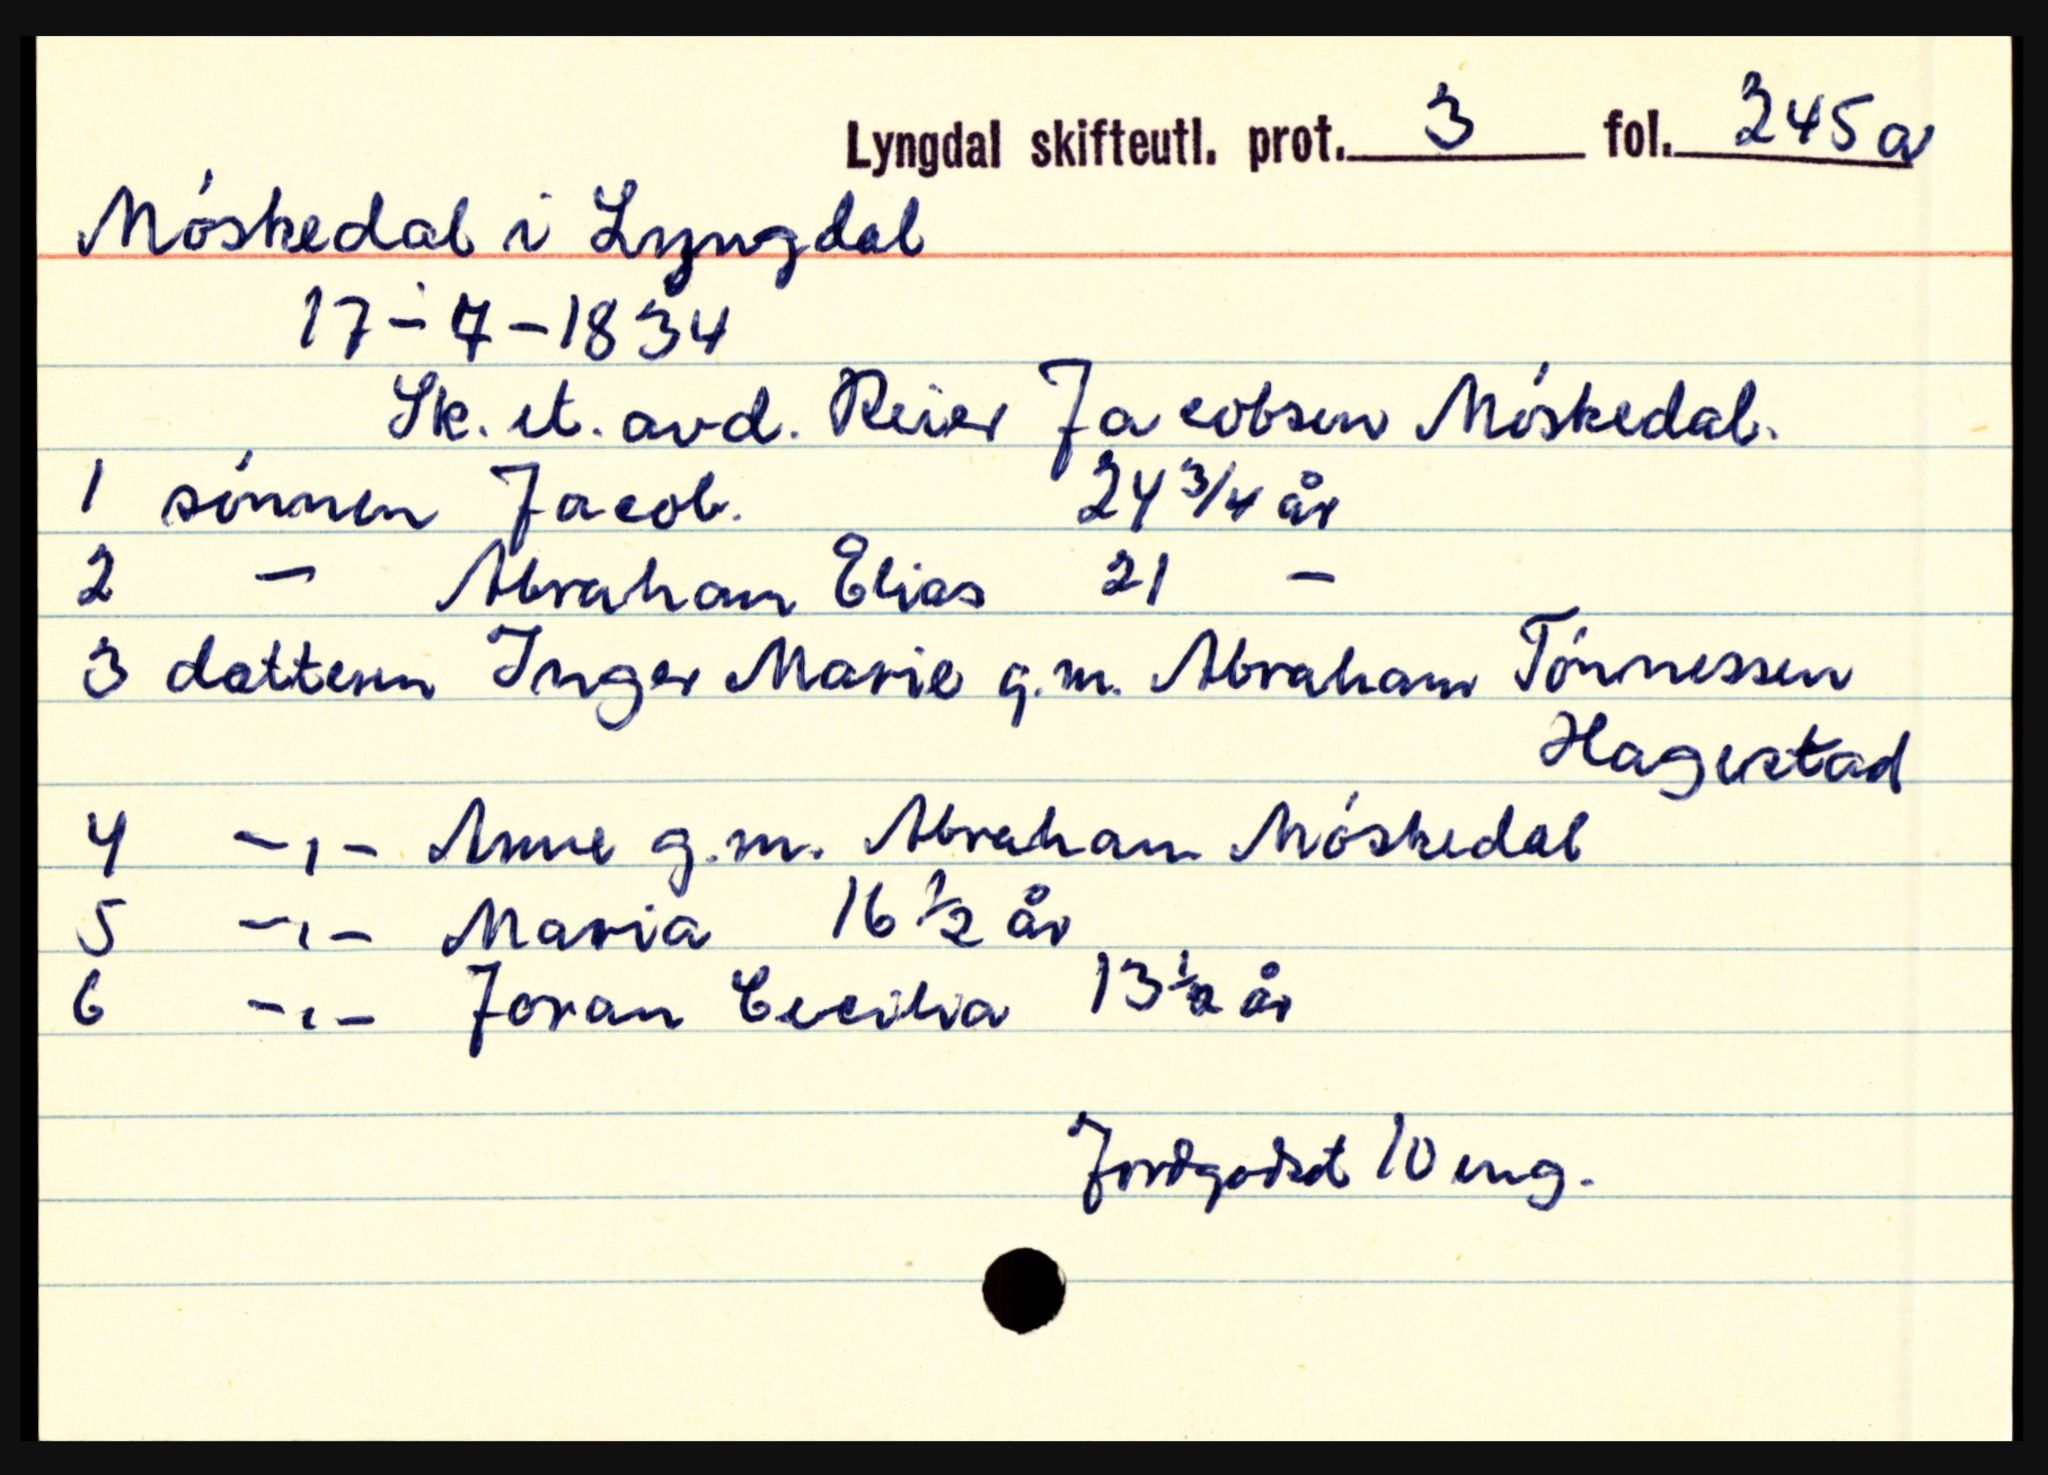 Lyngdal skifteutl. prot. 3 fol. 245a
Móskedal i Lyngdal
17-7-1834
Sk. et. avd. Reier Jacobsen Móskedal.
1 sónnen Jacob. 24 3/4 år
2 - Abraham Elias 21 -
3 datteren Inger Marie g.m. Abraham Tónnessen
Hagestad
4 -,- Anne g.m. Abraham Móskedal
5 -,- Maria 16 1/2 år
6 -,- Joran Cecilia 13 1/2 år
Jordgodset 10 eng.